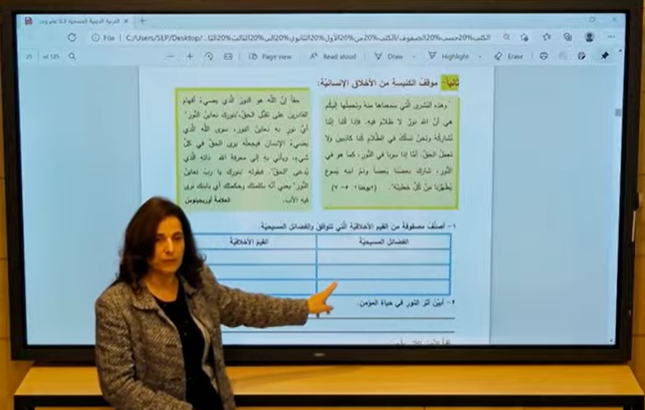 File | C:/Users/SEP/Desktop/
25 of 125
Page view
Read aloud
Draw
Highlight
Erase
ثانياً- موقف الكنيسة من الأخلاق الإنسانيّة:
"وهذه البُشرى الّتي سمعناها منه ونحملها إليكم
هي أنّ الله نورٌ لا ظلامَ فيه. فإذا قُلنا إنّنا
نُشاركُه ونحنُ نسلُكُ في الظّلام كُنا كاذبين ولا
نعملُ الحقّ. أمّا إذا سرنا في النّور، كما هو في
النّور، شاركَ بعضُنا بعضاً ودمُ ابنه يسوع
يُطهّرُنا مِنْ كُلّ خطيئة". (١يوحنا١: ٥- ٧)
حقاً إنّ الله هو النورُ الّذي يضيءُ أفهام
القادرين على تقبّل الحقّ،"بنورك نعاينُ النّور"
أيّ نورٍ به نعاينُ النور، سوى الله الّذي
يضيءُ الإنسان فيجعلُه يرى الحقّ في كلّ
شيء، ويأتي به إلى معرفة الله ذاته الّذي
يُدعى "الحقّ". فبقوله "بنورك يا ربّ نعاينُ
النّور" يعني أنّه بكلمتك وحكمتك أي بابنك نرى
فيه الآب.
العلامة أوريجينوس
١- أصنّف مصفوفة من القيم الأخلاقيّة الّتي تتوافق والفضائل المسيحيّة:
الفضائل المسيحيّة
القيم الأخلاقيّة
٢- أبيّن أثر النّور في حياة المؤمن.